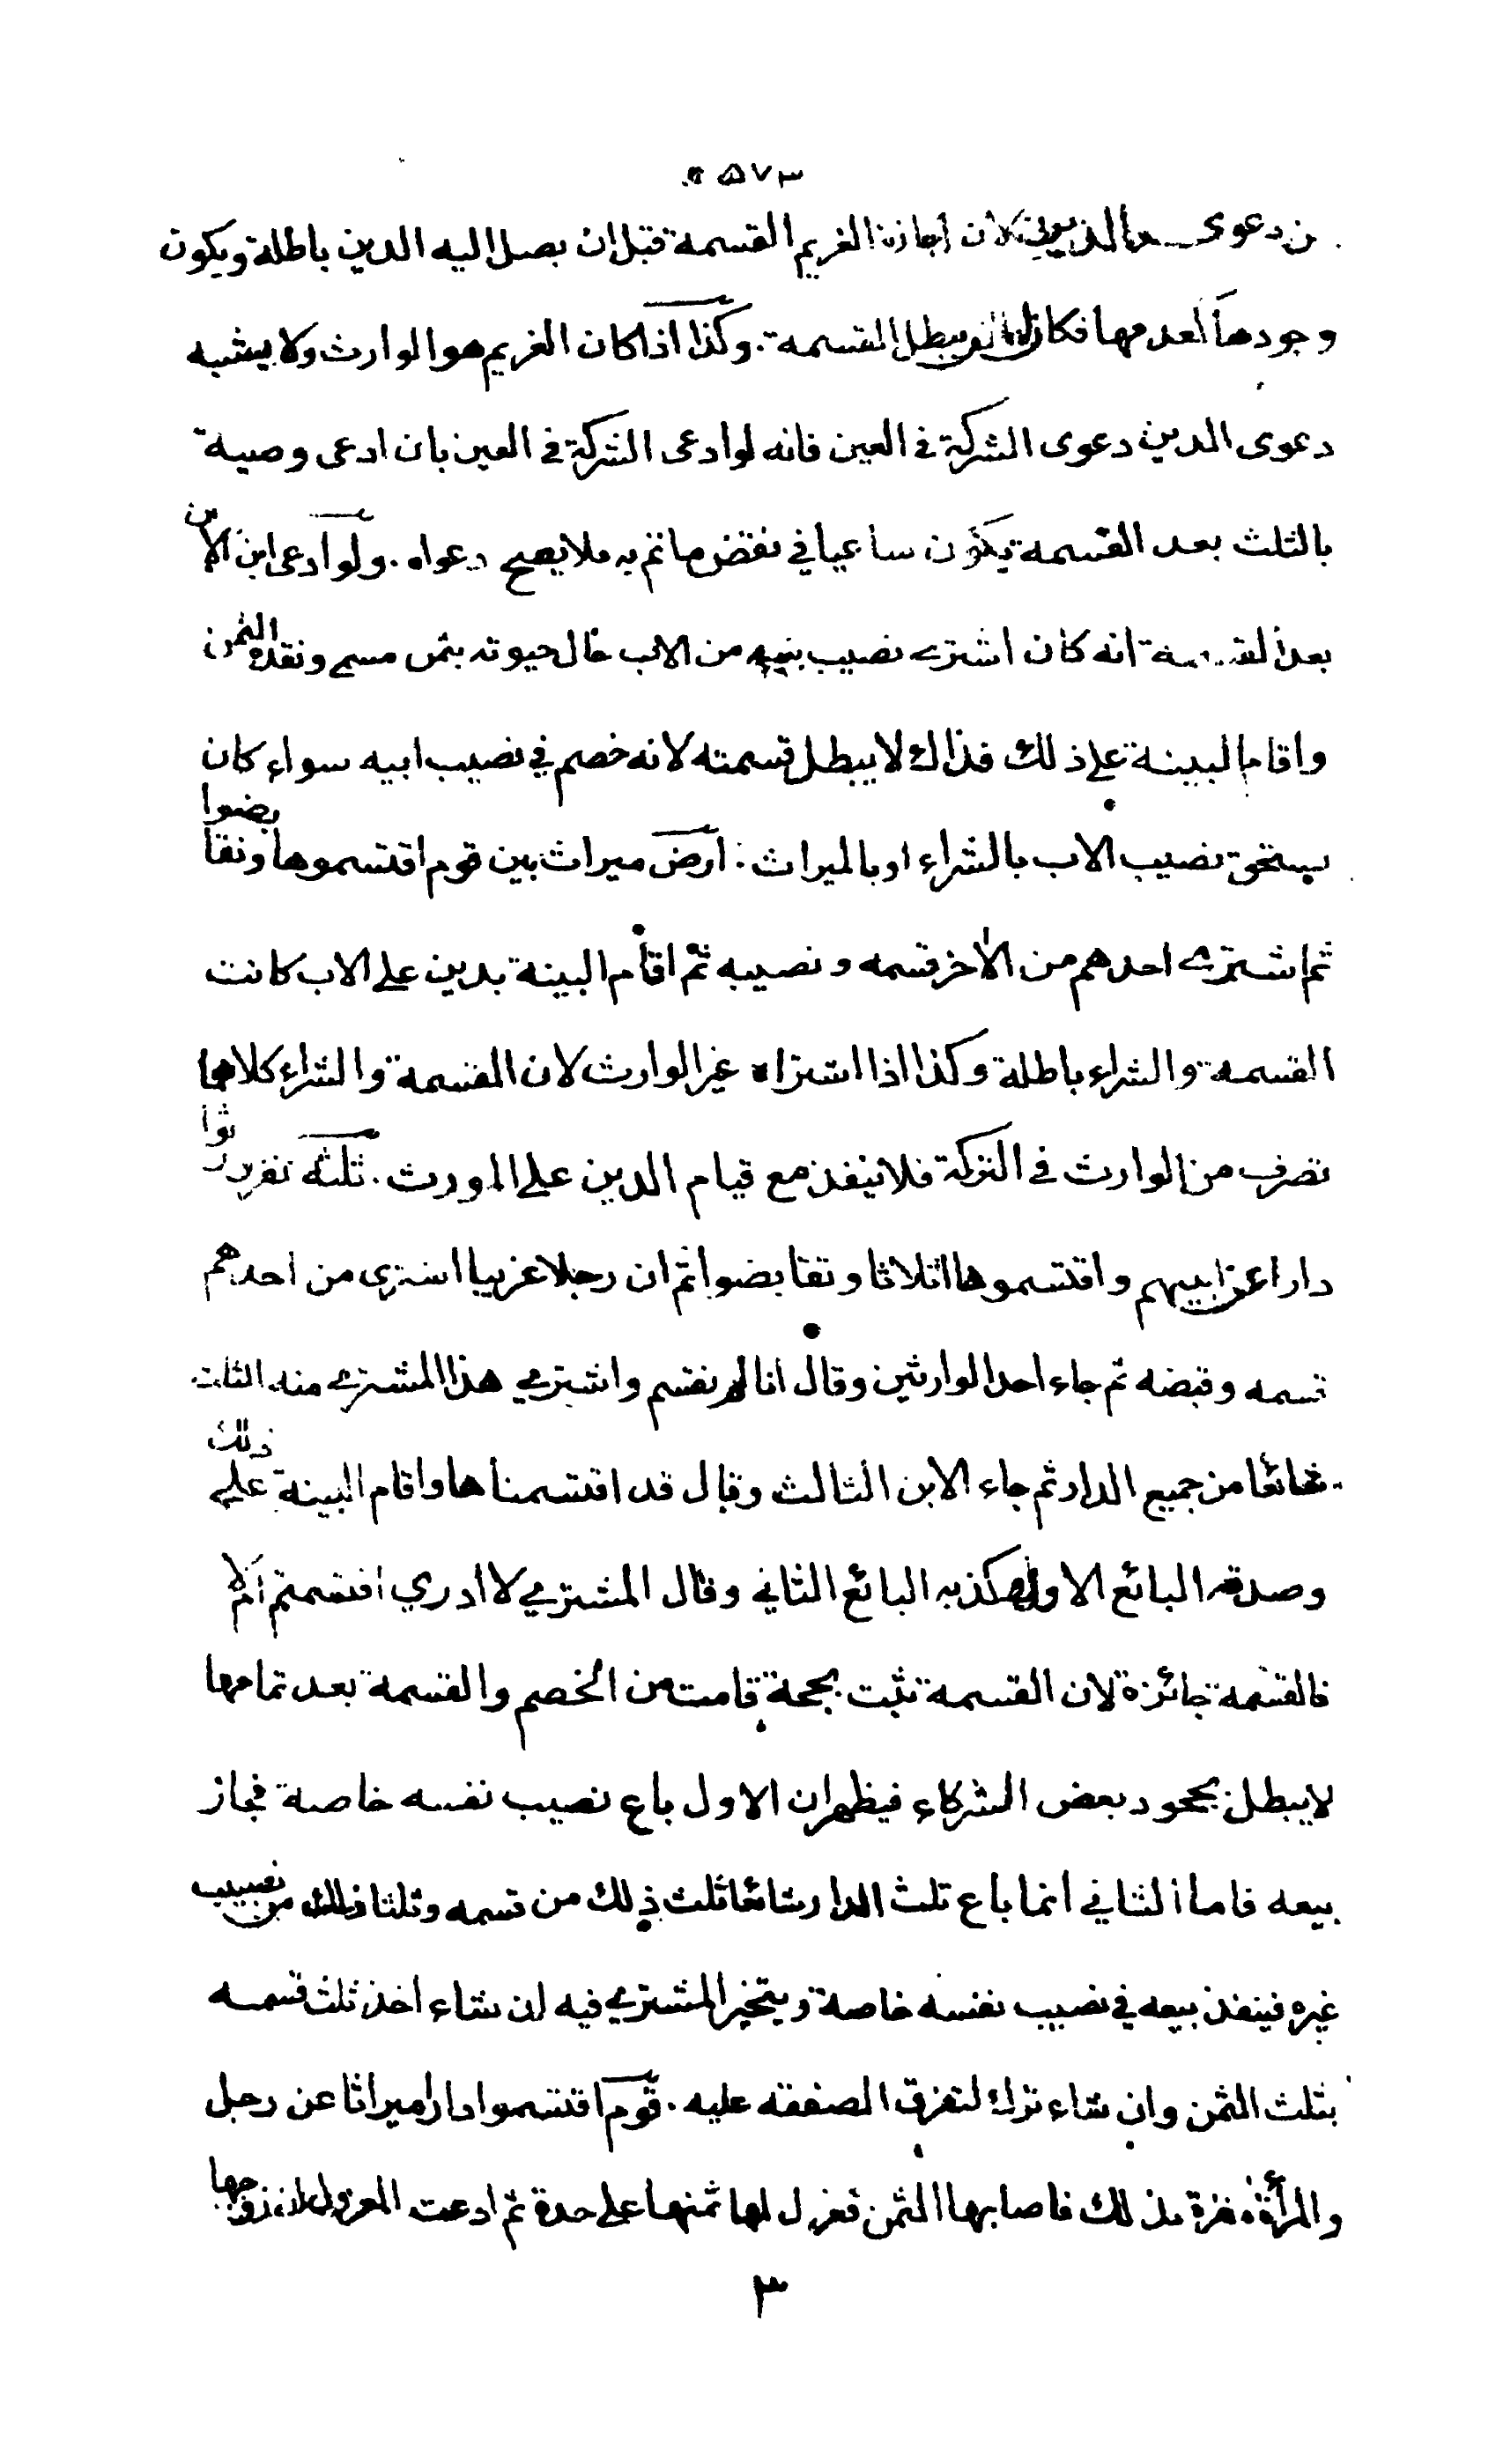 ٥٧٣
من دعوى الدين لان اجازة الغريم القسمة قبل ان يصل اليه الدين باطلة ويكون
وجودها لعدمها فكان له ان يبطل القسمة. وكذا اذا كان الغريم هو الوارث ولا يشبه
دعوى الدين دعوى الشركة في العين فانه لو ادعى الشركة في العين بان ادعى وصية
بالثلث بعد القسمة يكون ساعيا في نقض ما تم به فلا يصح دعواه. ولو ادعى ابن الابن
بعد القسمة انه كان اشترى نصيب من الاب حال حيوته بثمن مسمى ونقده الثمن
واقام البينة على ذلك فذاك لا يبطل قسمته لانه خصم في نصيب ابيه سواء كان
يستحق نصيب الاب بالشراء او بالميراث: ارض ميراث بين قوم اقتسموها وتقابضوا
ثم اشترى احدهم من الاخر قسمه ونصيبه ثم اقام البينة بدين على الاب كانت
القسمة والشراء باطلة وكذا اذا اشتراه غير الوارث لان القسمة والشراء كلاهما
تصرف من الوارث في التركة فلا ينفذ مع قيام الدين على المورث. ثلثة نفر ورثوا
دارا عن ابيهم واقتسموها اثلاثا وتقابضوا ثم ان رجلا غريبا اشترى من احدهم
قسمه وقبضه ثم جاء احد الوارثين وقال انا لم نقتسم واشترى هذا المشتري منه الثلث
شائعا من جميع الدار ثم جاء الابن الثالث وقال قد اقتسمناها واقام البينة على ذلك
وصدقه البائع الاول وكذبه البائع الثاني وقال المشتري لا ادري اقتسمتم ام لا
فالقسمة جائزة لان القسمة تثبت بحجة قامت من الخصم والقسمة بعد تمامها
لا يبطل بجحود بعض الشركاء فيظهر ان الاول باع نصيب نفسه خاصة فجاز
بيعه فاما الثاني انما باع ثلث الدار شائعا ثلث ذلك من قسمه وثلثا ذلك من نصيب
غيره فينفذ بيعه في نصيب نفسه خاصة ويتخير المشتري فيه ان شاء اخذ ثلث قسمه
بثلث الثمن وان شاء ترك لتفرق الصفقه عليه. قوم اقتسموا دارا ميراثا عن رجل
والمرأة مقرة بذلك فاصابها الثمن فعزل لها ثمنها على حدة ثم ادعت المعزول ان زوجها
٣